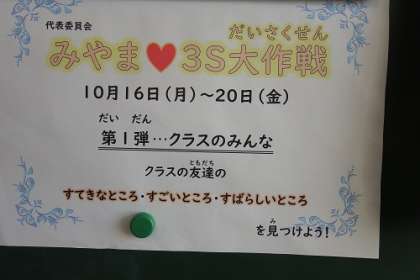 代表委員会
だいさくせん
みやま♥3S大作戦
10月16日(月)~20日(金)
だい だん
第1弾…クラスのみんな
ともだち
クラスの友達の
すてきなところ・すごいところ・すばらしいところ
み
を見つけよう!